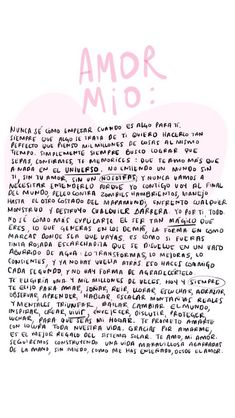 AMOR
MIO:
NUNCA SÉ CÓMO EMPEZAR CUANDO ES ALGO PARA TI.
SIEMPRE QUE ALGO SE TRATA DE TI QUIERO HACERLO TAN
PERFECTO QUE PIENSO MIL MILLONES DE COSAS AL MISMO
TIEMPO. SIMPLEMENTE SIEMPRE BUSCO LOGRAR QUE
SEPAS, CONFIRMES, TE MEMORICES: QUE TE AMO MÁS QUE
A NADA EN EL UNIVERSO. NO ENTIENDO UN MUNDO SIN
TI, SIN TU AMOR, SIN UN NOSOTRAS, Y NUNCA VAMOS A
NECESITAR ENTENDERLO PORQUE YO CONTIGO VOY AL FINAL
DEL MUNDO, PELEO CONTRA ZOMBIES HAMBRIENTOS, MANEJO
HASTA EL OTRO COSTADO DEL MAPAMUNDI, ENFRENTO CUALQUIER
MONSTRUO Y DESTRUYO CUALQUIER BARRERA. YO POR TI, TODO.
NO SÉ CÓMO MÁS EXPLICARTE EL SER TAN MÁGICO QUE
ERES, LO QUE GENERAS EN LOS DEMÁS, LA FORMA EN COMO
MARCAS DONDE SEA QUE VAYAS, ES COMO SI FUERAS
TINTA ROJADA ESCARCHADITA QUE SE DISUELVE EN UN VASO
ABURRIDO DE AGUA: LO TRANSFORMAS, LO MEJORAS, LO
CONVIERTES, Y YA NO HAY VUELTA ATRÁS. ESO HACES CONMIGO
CADA SEGUNDO, Y NO HAY FORMA DE AGRADECÉRTELO.
TE ELEGIRÍA UNA Y MIL MILLONES DE VECES, HOY Y SIEMPRE
TE ELIJO PARA AMAR, SOÑAR, REÍR, LLORAR, ESCUCHAR, ABRAZAR,
OBSERVAR, APRENDER, HABLAR, ESCALAR MONTAÑAS REALES
Y MENTALES, TRIUNFAR, BAILAR, CAMBIAR EL MUNDO,
INSPIRAR, CREAR, VIVIR, ENVEJECER, DISCUTIR, PROTEGER,
LUCHAR, PARA QUE SEAS MI HOGAR. TE PROMETO AMARTE
CON LOCURA TODA NUESTRA VIDA. GRACIAS POR AMARME,
ES EL MEJOR REGALO DEL SISTEMA SOLAR. TE AMO, MI AMOR.
SEGUIREMOS CONSTRUYENDO UNA VIDA MARAVILLOSA AGARRADAS
DE LA MANO, SIN MIEDO, COMO ME HAS ENSEÑADO, DESDE EL AMOR.